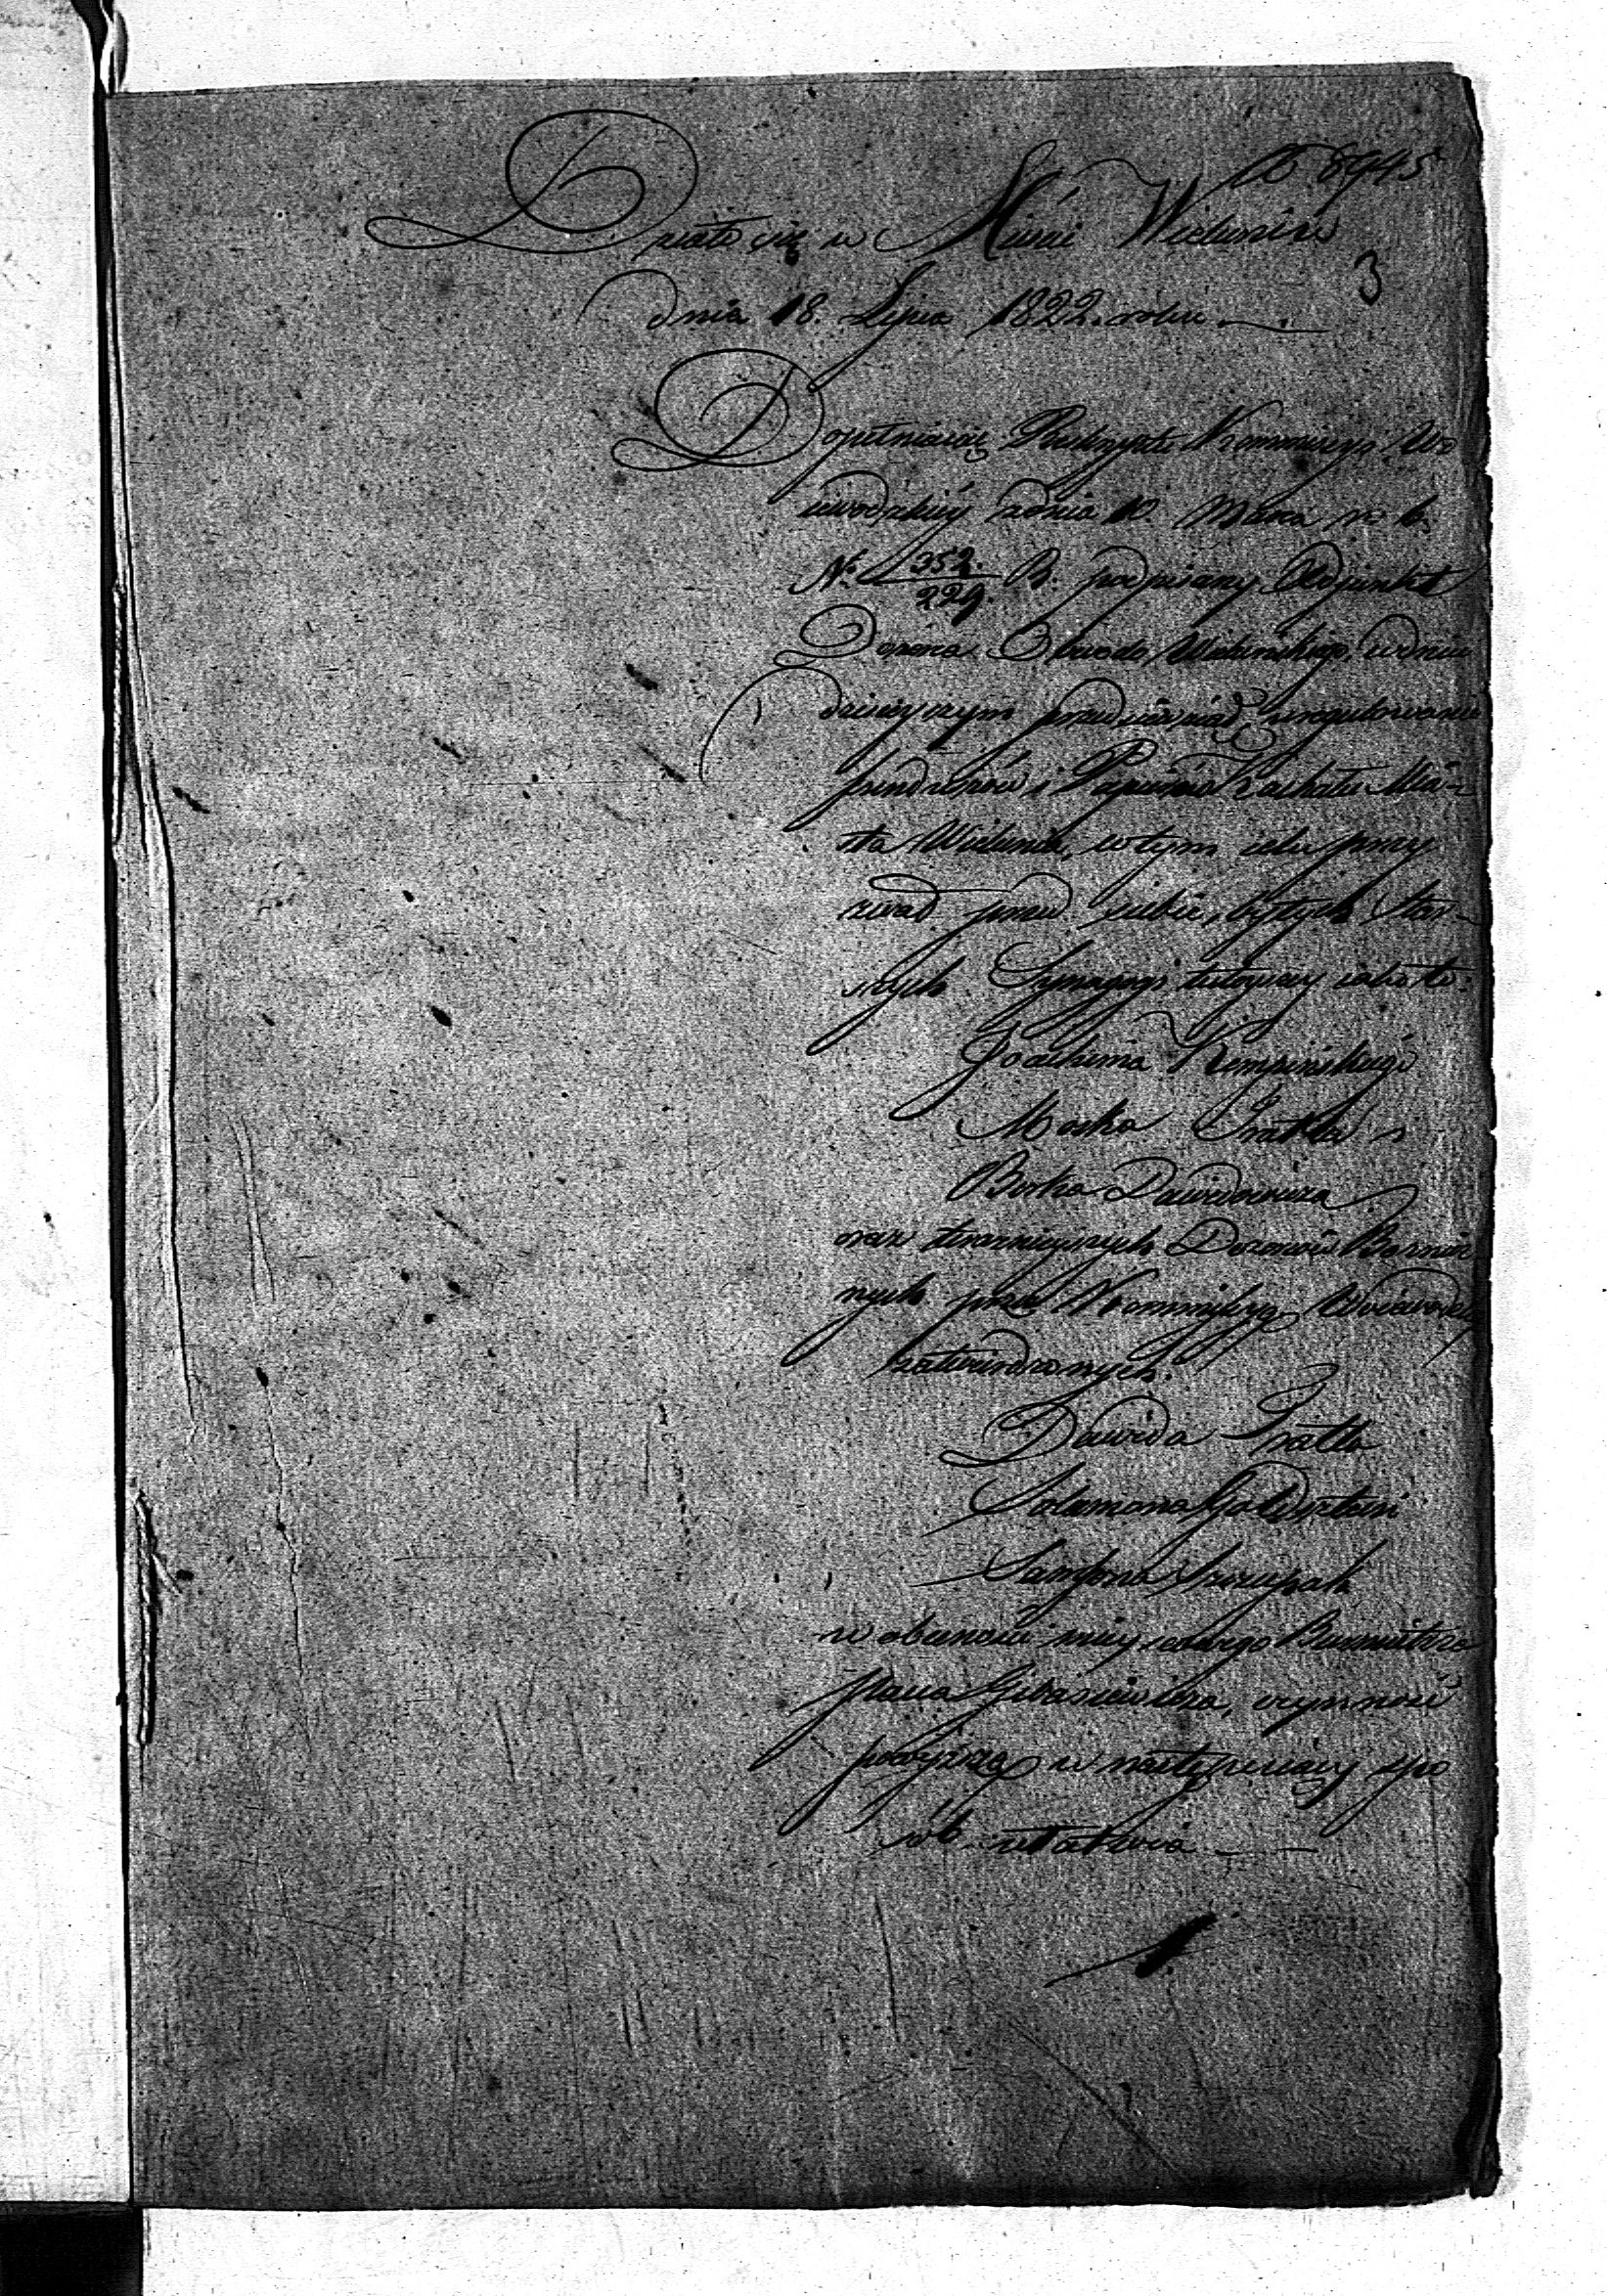 8945
Działo się w Mieście Wieluniu
3
dnia 18. Lipca 1822. roku
Dopełniaiąc Reskryptu Kommissyi Wo
iewodzkiey z dnia 10. Marca r. b.
N. 352./229. B. podpisany Adjunkt
Dozorca Obwodu Wieluńskiego, w dniu
dzisieyszym przedsięwziął uregulowanie
funduszów i Papierów Kachału Mia-
sta Wielunia, w tym celu przy
zwał przed siebie, byłych Star-
szych Synagogi tuteyszey iako to.
Joachima Kempińskiego
Moska Izatta
Berka Dawidowicza
oraz teraznieyszych Dozorców Bożnicz
nych przez Kommissyą Woiewodzką
zatwierdzonych.
Dawida Izatta
Salamona Goldsztein
Szczupak
w obecności mieyscowego Burmistrza
Pana Gibasiewicza, czynność
powyższą w następuiący spo
sób ułatwia